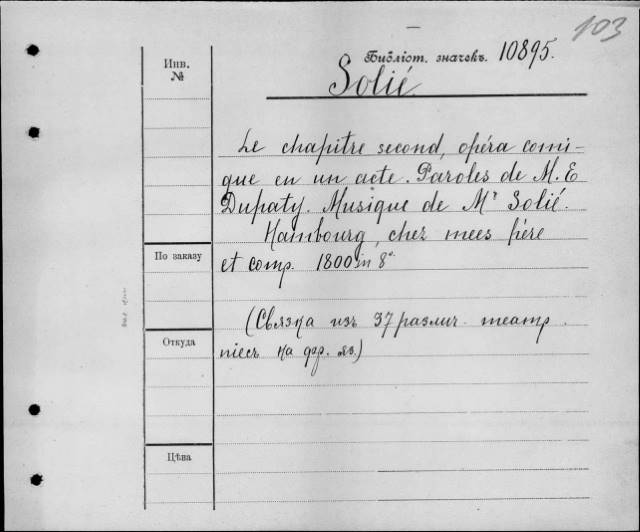 103
Инв.
№
Библіот. значекъ. 10895.
Solié.
Le chapitre second, opéra comi-
que en un acte. Paroles de M. E
Dupaty. Musique de Mr Solié.
Hambourg, chez mees père
et comp. 1800 in 8°
По заказу
(Связка изъ 37 различ. театр.
Откуда
піесъ на фр. яз.)
Цѣна